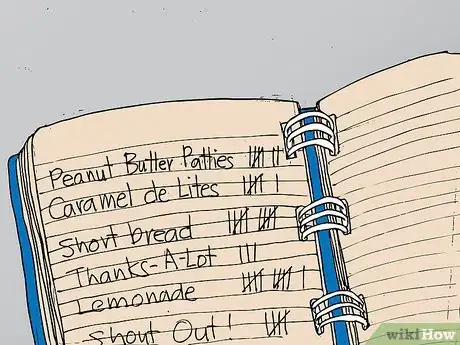 Peanut Butter Patties 卌 ||
Caramel de Lites 卌 |
Short bread 卌 卌
Thanks-A-Lot |||
Lemonade 卌 卌 |
Shout Out! 卌
wikiHow